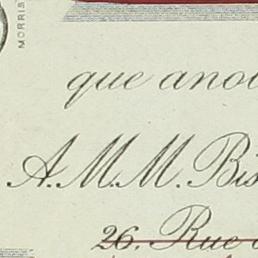 MORRIS
que anou
A.M.M. Bis
26. Rue